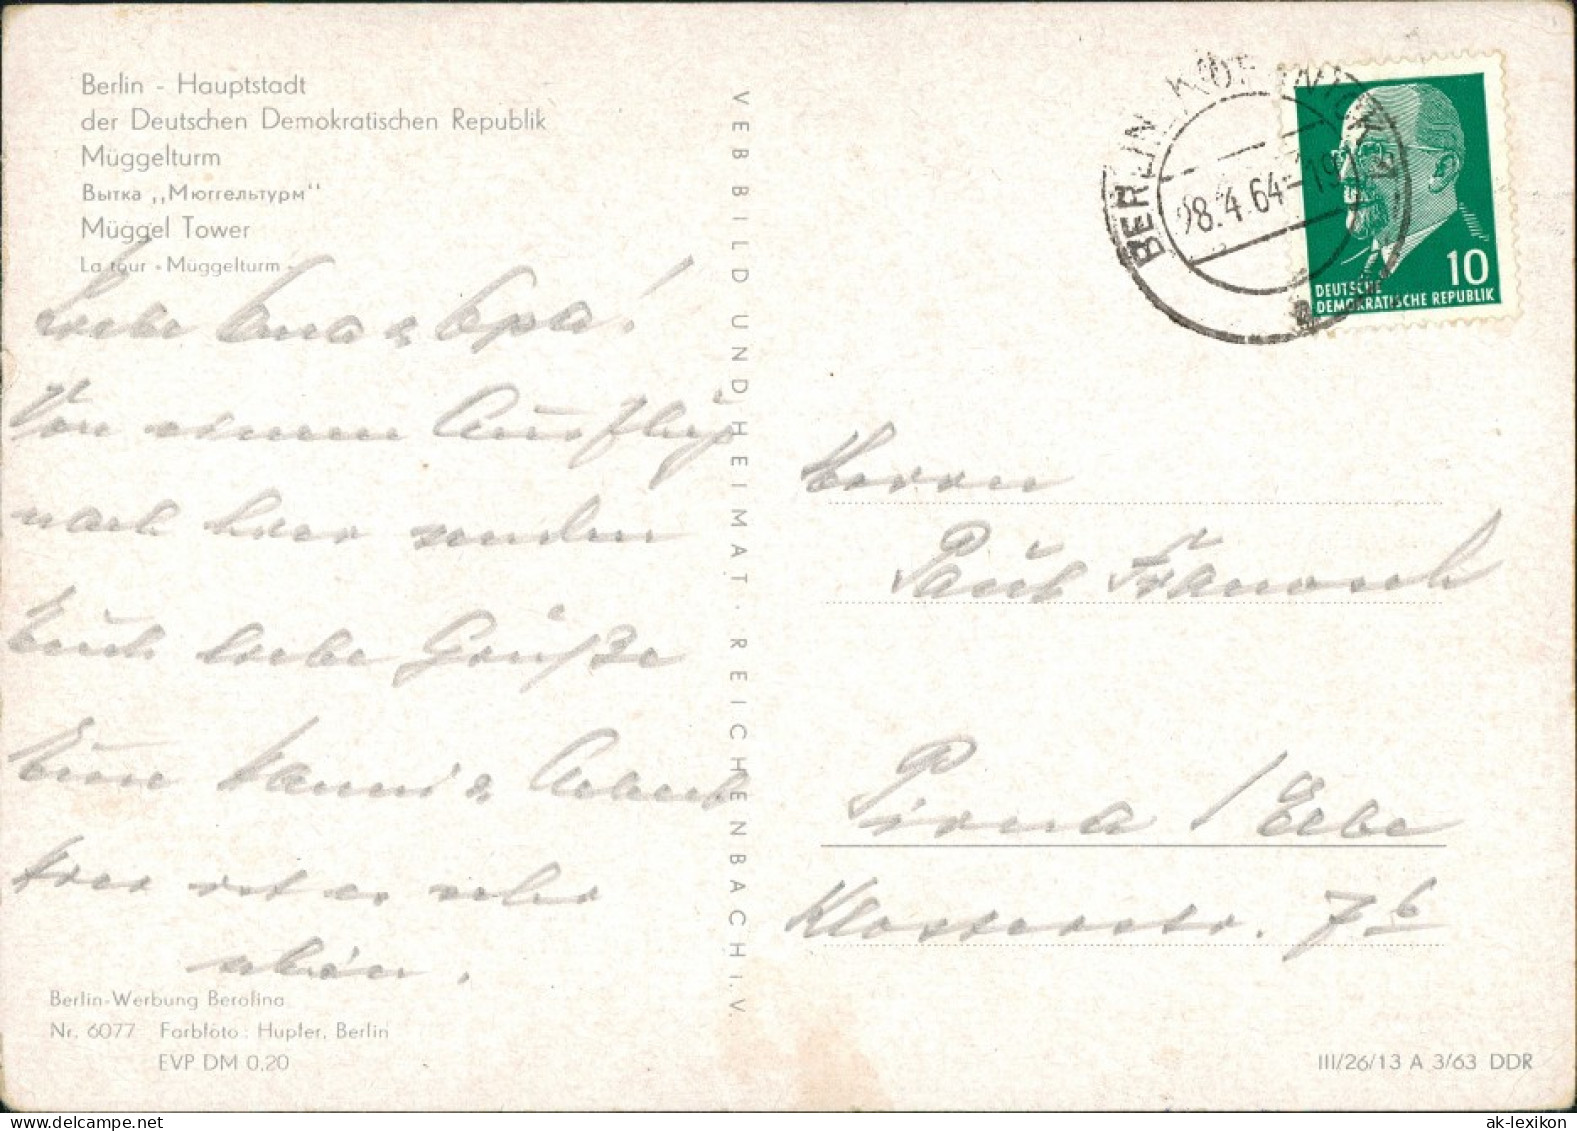 Berlin - Hauptstadt
der Deutschen Demokratischen Republik
Müggelturm
Вытка „Мюггельтурм"
Müggel Tower
La tour «Müggelturm»
Liebe Oma & Opa!
Von einem Ausflug
nach hier senden
Euch liebe Grüße
Eure Hanni &
hier ist es sehr
schön.
Berlin-Werbung Berolina
Nr. 6077 Farbfoto: Hupfer, Berlin
EVP DM 0,20
VEB BILD UND HEIMAT · REICHENBACH i. V.
BERLIN-KÖPENICK 1
28.4.64-19
a
10
DEUTSCHE
DEMOKRATISCHE REPUBLIK
Herrn
Paul
Pirna / Elbe
Klosterstr. 7b
III/26/13 A 3/63 DDR
ak-lexikon